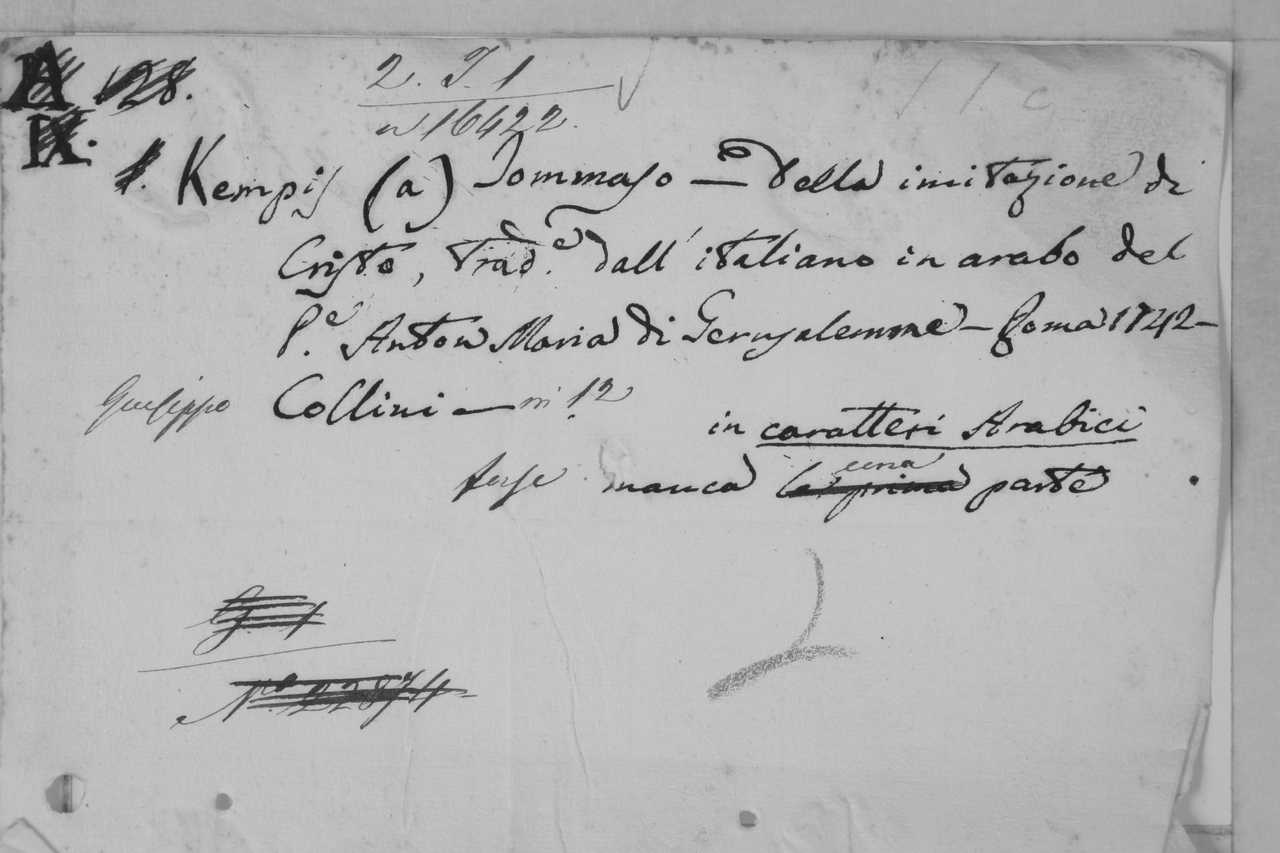 A 128.
2. J. 1
IX.
n 16422.
1. Kempis (a) Tommaso — Della imitazione di
Cristo, trad.e dall' italiano in arabo del
P.e Anton Maria di Gerusalemme — Roma 1742 —
Giuseppe Collini — in 12
in caratteri Arabici
forse manca la prima una parte
No 22874